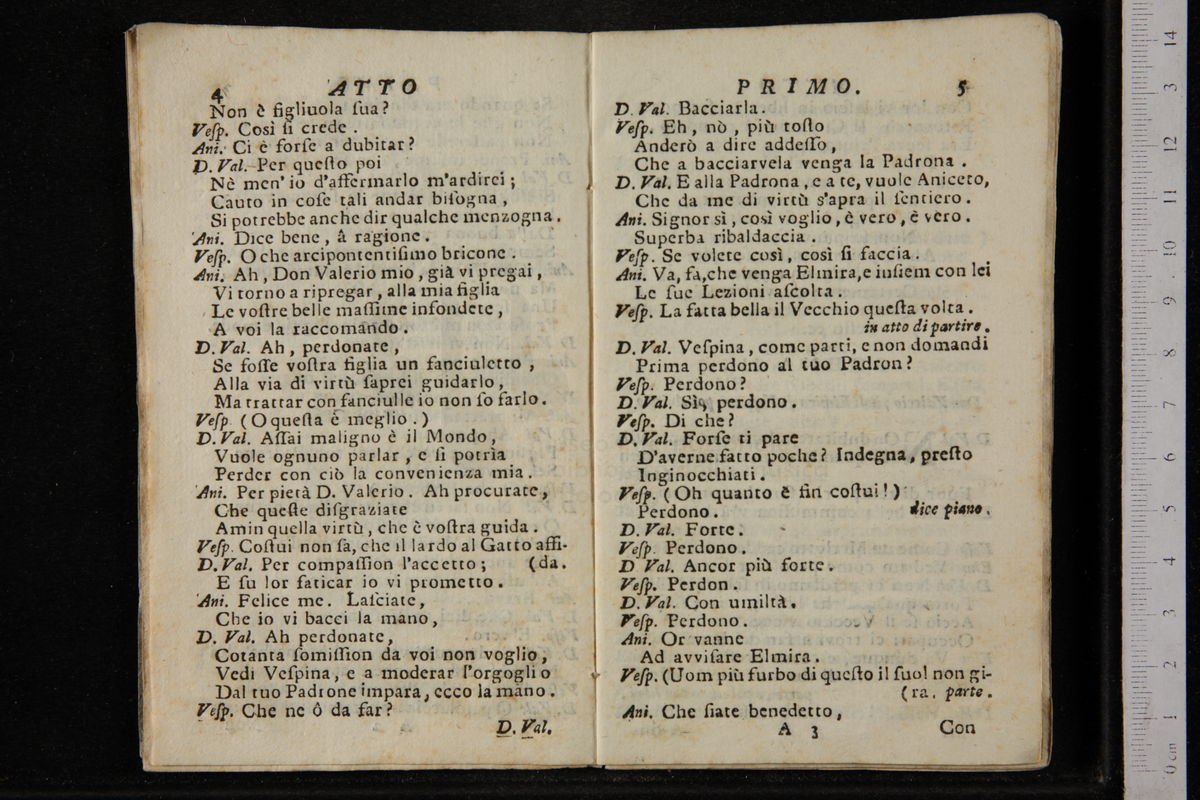 4 ATTO
Non è figliuola ſua?
Veſp. Così ſi crede .
Ani. Ci è forſe a dubitar?
D. Val. Per queſto poi
Nè men' io d'affermarlo m'ardirei ;
Cauto in coſe tali andar biſogna ,
Si potrebbe anche dir qualche menzogna .
Ani. Dice bene , â ragione .
Veſp. O che arcipontentiſimo bricone .
Ani. Ah , Don Valerio mio , già vi pregai ,
Vi torno a ripregar , alla mia figlia
Le voſtre belle maſſime infondete ,
A voi la raccomando .
D. Val. Ah , perdonate ,
Se foſſe voſtra figlia un fanciuletto ,
Alla via di virtù ſaprei guidarlo ,
Ma trattar con fanciulle io non ſo farlo .
Veſp (O queſta è meglio .)
D. Val. Aſſai maligno è il Mondo ,
Vuole ognuno parlar , e ſi potrìa
Perder con ciò la convenienza mia .
Ani. Per pietà D. Valerio . Ah procurate ,
Che queſte diſgraziate
Amin quella virtù , che è voſtra guida .
Veſp. Coſtui non ſa, che il lardo al Gatto affi-
D. Val. Per compaſſion l'accetto ; (da.
E ſu lor faticar io vi prometto .
Ani. Felice me. Laſciate ,
Che io vi bacci la mano ,
D. Val. Ah perdonate ,
Cotanta ſomiſſion da voi non voglio ,
Vedi Veſpina , e a moderar l'orgoglio
Dal tuo Padrone impara , ecco la mano .
Veſp. Che ne ô da far?
D. Val.
PRIMO. 5
D. Val. Bacciarla .
Veſp. Eh , nò , più toſto
Anderò a dire addeſſo ,
Che a bacciarvela venga la Padrona .
D. Val. E alla Padrona , e a te, vuole Aniceto,
Che da me di virtù s'apra il ſentiero .
Ani. Signor sì , così voglio , è vero , è vero .
Superba ribaldaccia .
Veſp. Se volete così , così ſi faccia .
Ani. Va, fa, che venga Elmira, e inſiem con lei
Le ſue Lezioni aſcolta .
Veſp. La fatta bella il Vecchio queſta volta .
in atto di partire .
D. Val. Veſpina , come parti, e non domandi
Prima perdono al tuo Padron?
Veſp. Perdono?
D. Val. Sì, perdono .
Veſp. Di che?
D. Val. Forſe ti pare
D'averne fatto poche? Indegna, preſto
Inginocchiati .
Veſp. (Oh quanto è fin coſtui!)
Perdono . dice piano .
D. Val. Forte .
Veſp. Perdono .
D Val. Ancor più forte .
Veſp. Perdon .
D. Val. Con umiltà .
Veſp. Perdono .
Ani. Or vanne
Ad avviſare Elmira .
Veſp. (Uom più furbo di queſto il ſuol non gi-
(ra . parte .
Ani. Che ſiate benedetto ,
A 3 Con